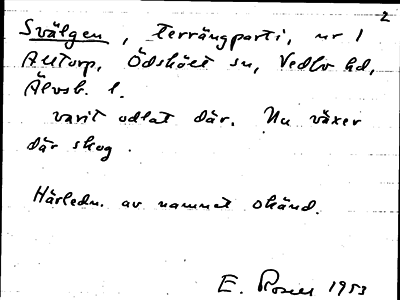 2
Svälgen, terrängparti, nr 1
Alltorp, Ödsköлt sn, Vedbo hd,
Älvsb. l.
varit odlat där. Nu växer
där skog.
Härledn. av namnet okänd.
E. Rosell 1953